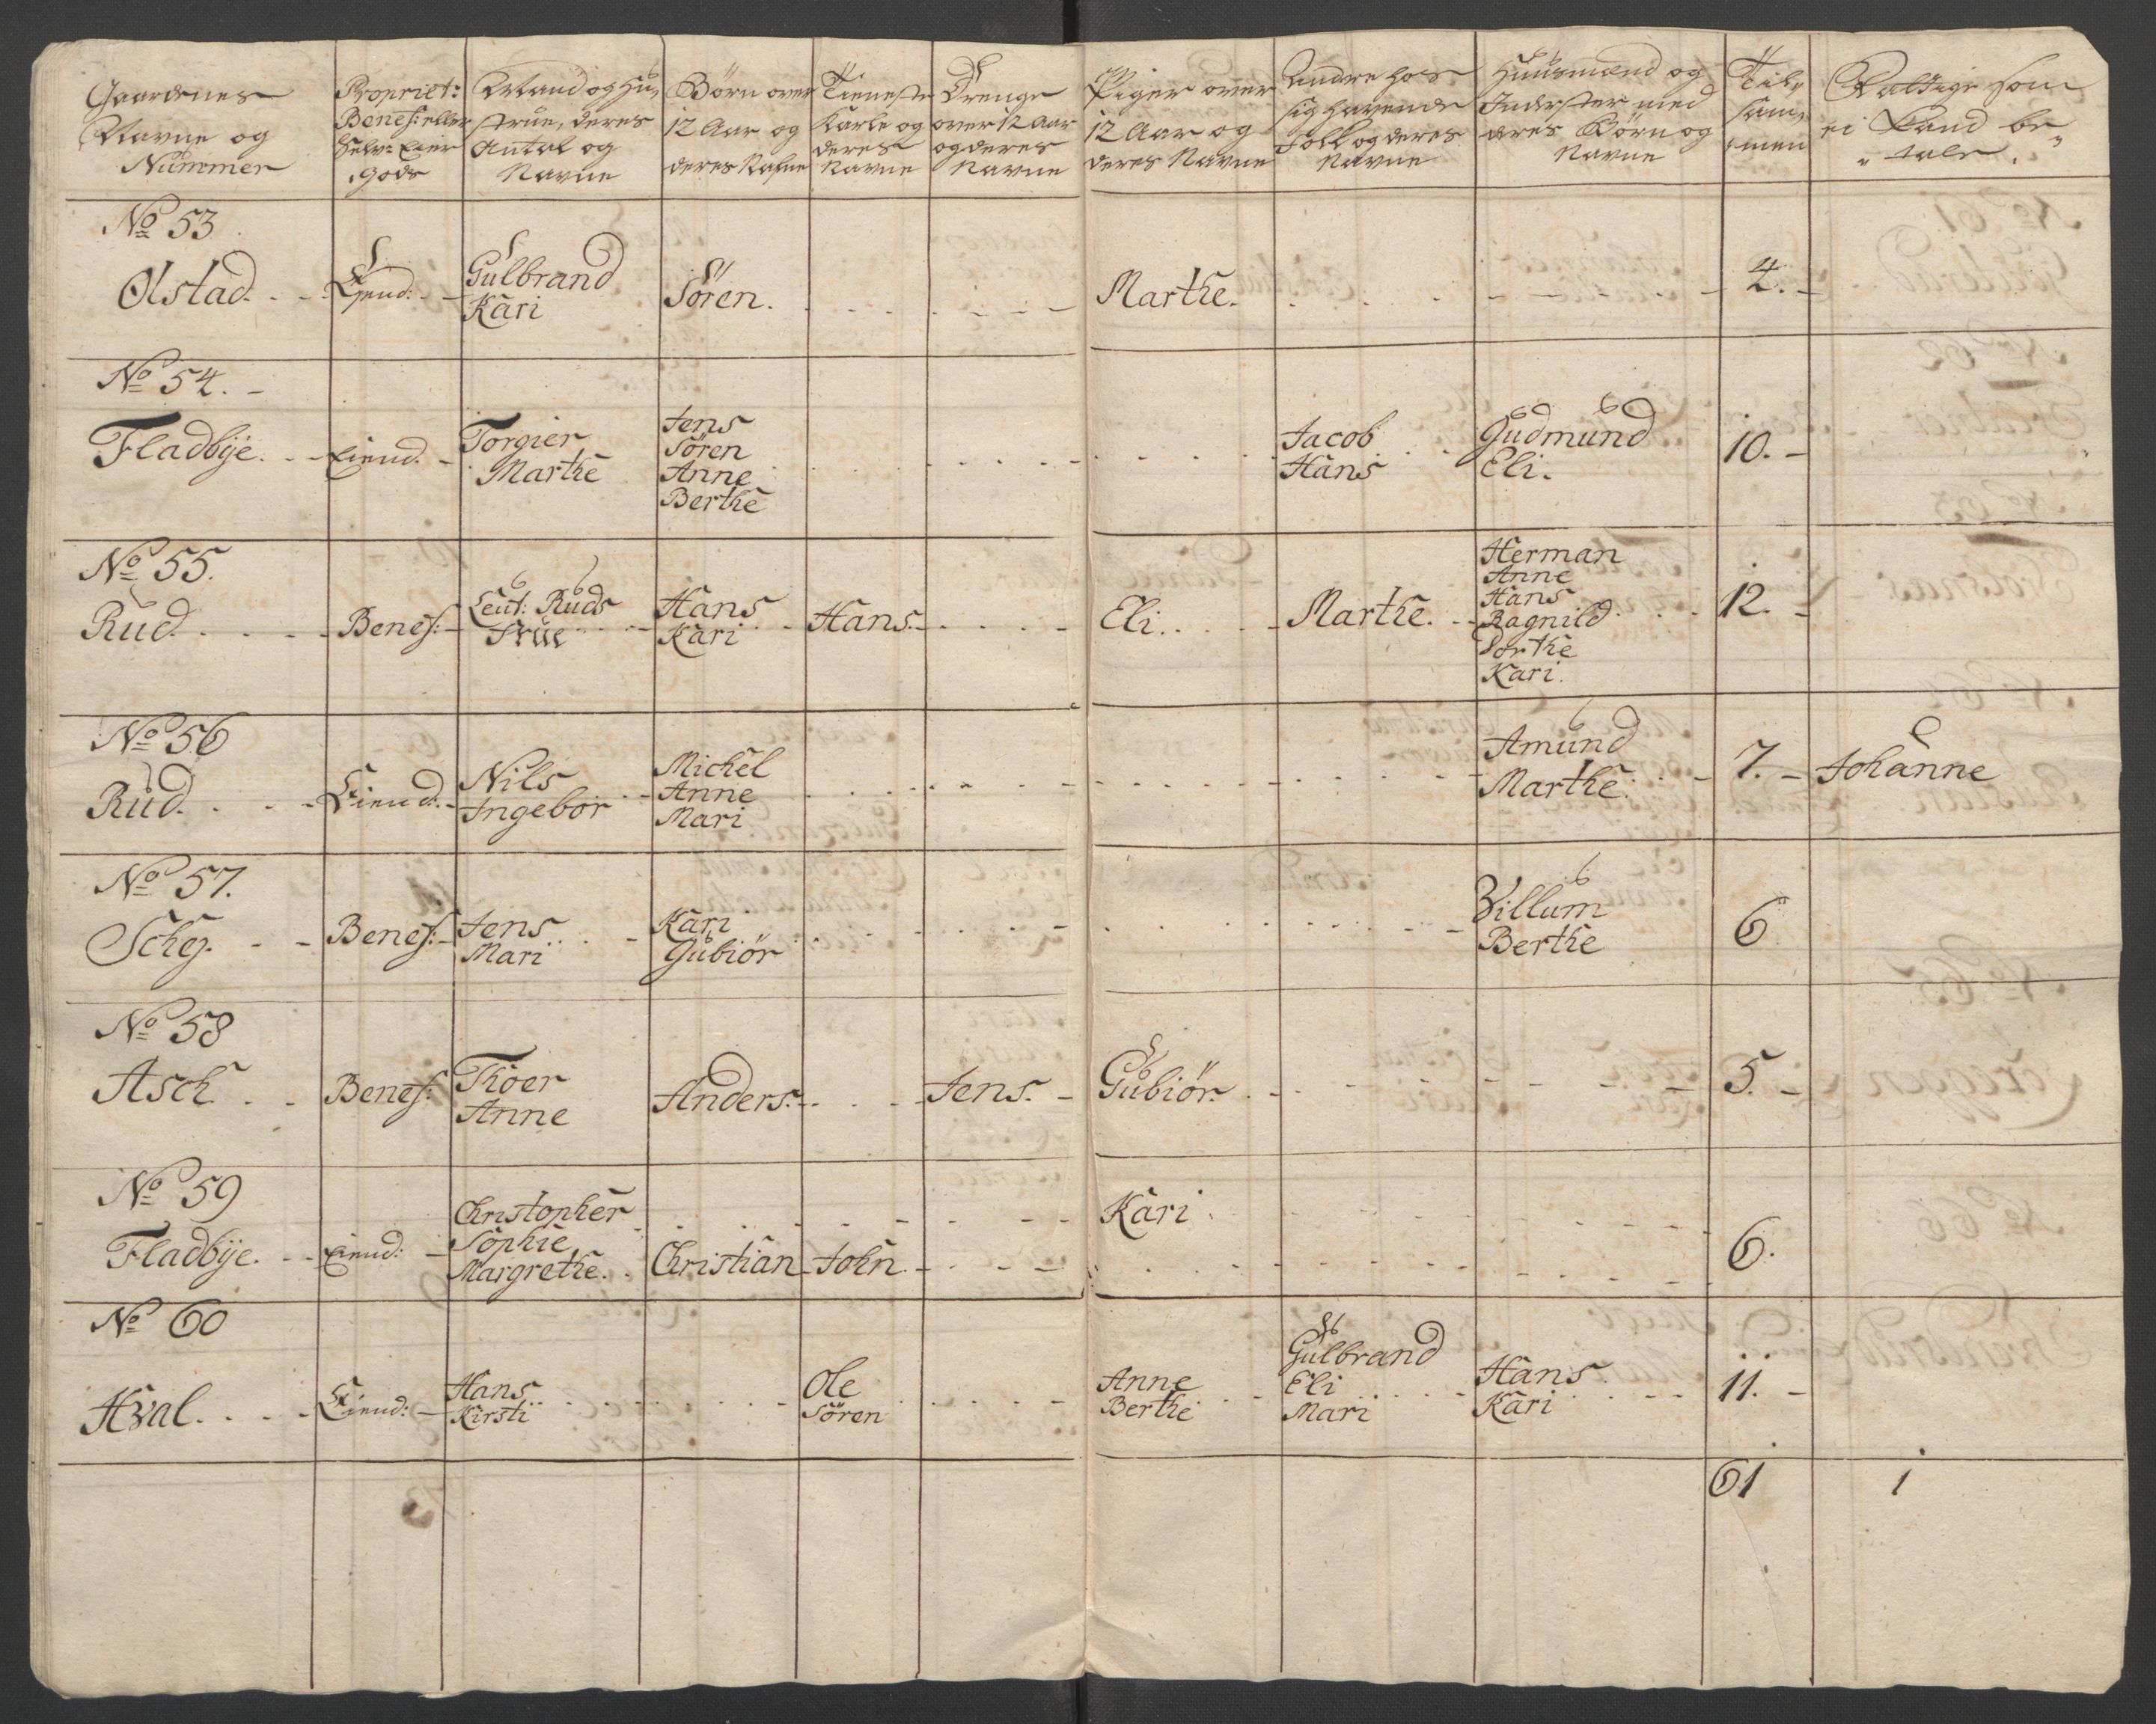 Gaardenes
Navne og
Nummer
Propriet:
Benef: eller
Selv-Eier
Gods
Mand og Hu-
strue, deres
Antal og
Navne
Börn over
12 Aar og
deres Nafne
Tieneste
Karle og
deres
Navne
Drenge
over 12 Aar
og deres
Navne
Piger over
12 Aar og
deres Navne
Andre hos
sig havende
Folk og deres
Navne
Huusmænd og
Inderster med
deres Börn og
Navne
Til-
sam-
men
Fattige som
ei kand be-
tale
No 53
Olstad. Eiend: Gulbrand Kari Sören. Marthe. 4.
No 54.
Fladbye. Eiend. Torgier Marthe
Jens
Sören
Anne
Berthe
Jacob
Hans
Gudmund
Eli.
10.
No 55.
Rud. Benef: Leut: Ruds Frue
Hans
Kari
Hans. Eli. Marthe.
Herman
Anne
Hans
Ragnild
Dorthe
Kari.
12.
No 56
Rud. Eiend. Nils Ingebor
Michel
Anne
Mari
Amund
Marthe.
7. Johanne
No 57.
Schej. Benef: Jens Mari
Kari
Gubiör
Villum
Berthe
6
No 58
Asch Benef: Thoer Anne
Anders. Jens. Gubiör. 5.
No 59
Fladbye. Eiend:
Christopher
Sophie
Margrethe. Christian John. Kari 6.
No 60
Hval. Eiend: Hans Kirsti
Ole
Sören
Anne
Berthe
Gulbrand
Eli
Mari
Hans.
Kari
11.
61 1